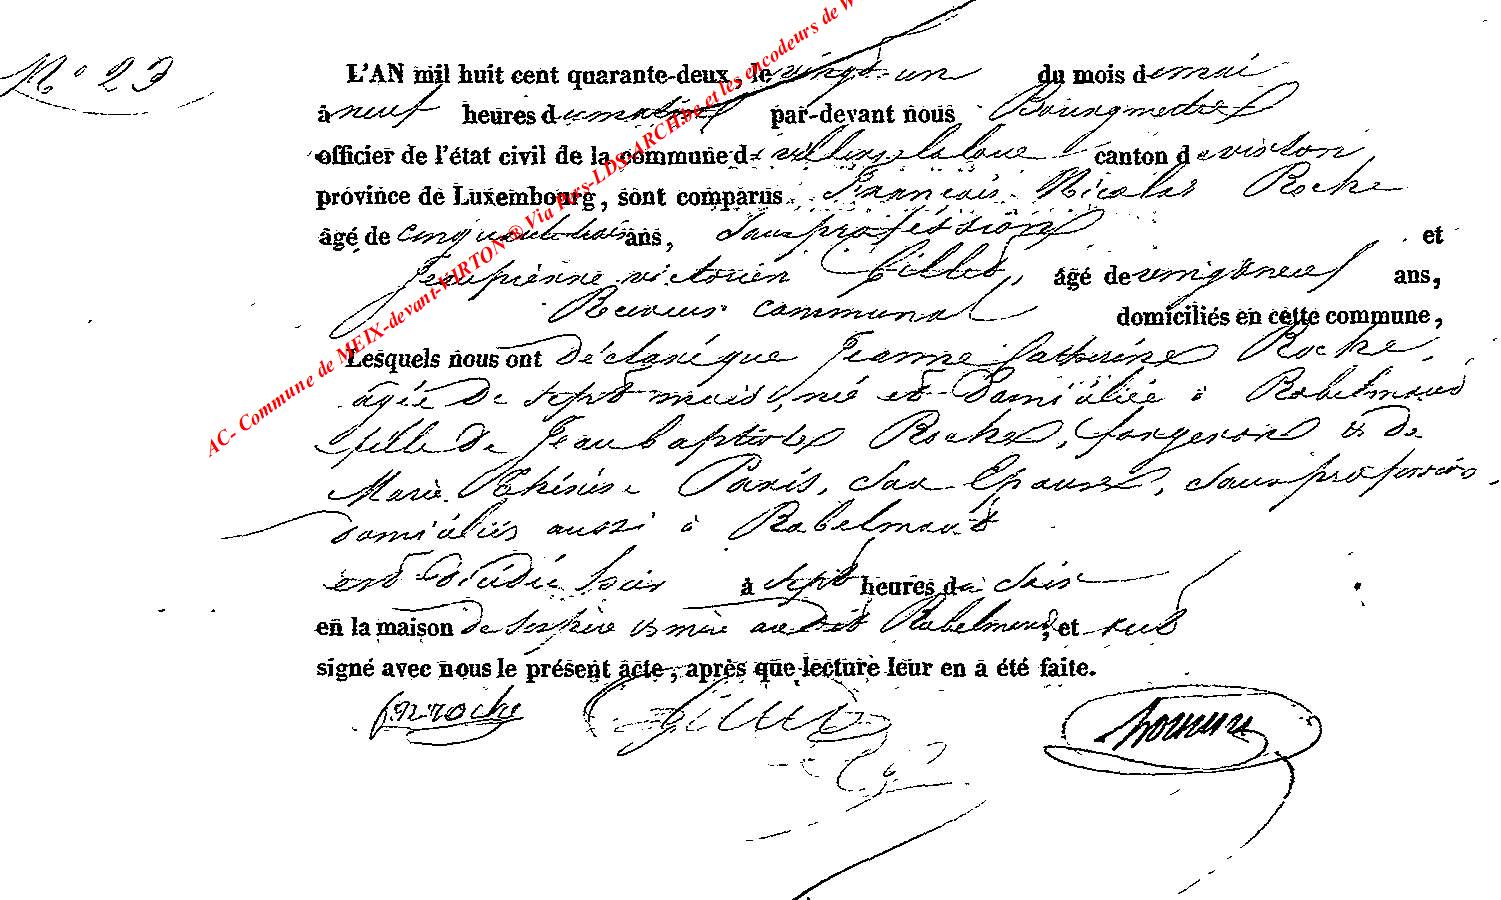 N° 23
L'AN mil huit cent quarante-deux, le vingt-un du mois de mai
à neuf heures du matin par-devant nous Bourgmestre
officier de l'état civil de la commune de villers la loue canton de virton
province de Luxembourg, sont comparus François Nicolas Roche
âgé de cinquante trois ans, sans profession et
Jean pierre victorien Gillet, âgé de vingt neuf ans,
Receveur communal domiciliés en cette commune,
Lesquels nous ont déclaré que Jeanne Catherine Roche,
âgée de sept mois, né et domiciliée à Robelmont
fille de Jean baptiste Roche, forgeron et de
Marie Thérèse Paris, son Epouse, sans profession,
domiciliés aussi à Robelmont
est décédée hier à sept heures du soir
en la maison de ses père et mère audit Robelmont, et ont
signé avec nous le présent acte, après que lecture leur en a été faite.
fn roche Gillet
AC- Commune de MEIX-devant-VIRTON ® Via Pars-LDS-ARCH.be et les encodeurs de